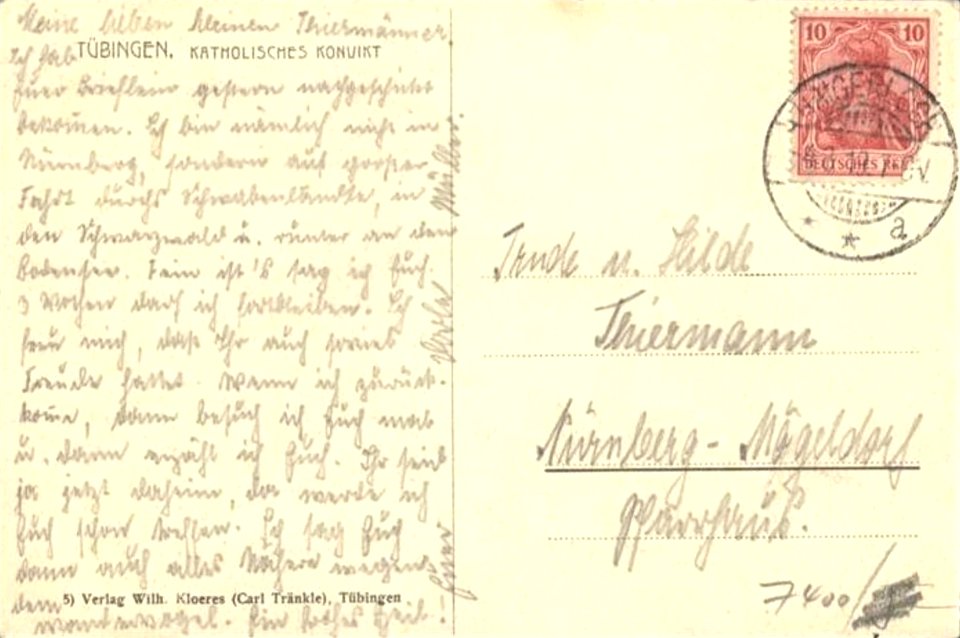 Meine lieben kleinen Thiermänner
Ich hab
TÜBINGEN, KATHOLISCHES KONVIKT
Euer Brieflein gestern nachgeschickt
bekommen. Ich bin nämlich nicht in
Nürnberg, sondern auf großer
Fahrt durchs Schwabenländle, in
den Schwarzwald u. runter an den
Bodensee. Fein ist's sag ich Euch.
3 Wochen darf ich fortbleiben. Ich
freu mich, daß Ihr auch soviel
Freude hattet. Wenn ich zurück-
komme, dann besuch ich Euch mal
u. dann erzähl ich Euch. Ihr seid
ja jetzt daheim, da werde ich
Euch schon treffen. Ich sag Euch
dann auch alles Nähere wegen
dem
5) Verlag Wilh. Kloeres (Carl Tränkle), Tübingen
Wandervogel. Ein frohes Heil!
Euer
Müller
10 10
DEUTSCHES REICH
* * a
Trude u. Hilde
Thiermann
Nürnberg-Mögeldorf
Pfarrhaus.
7400/